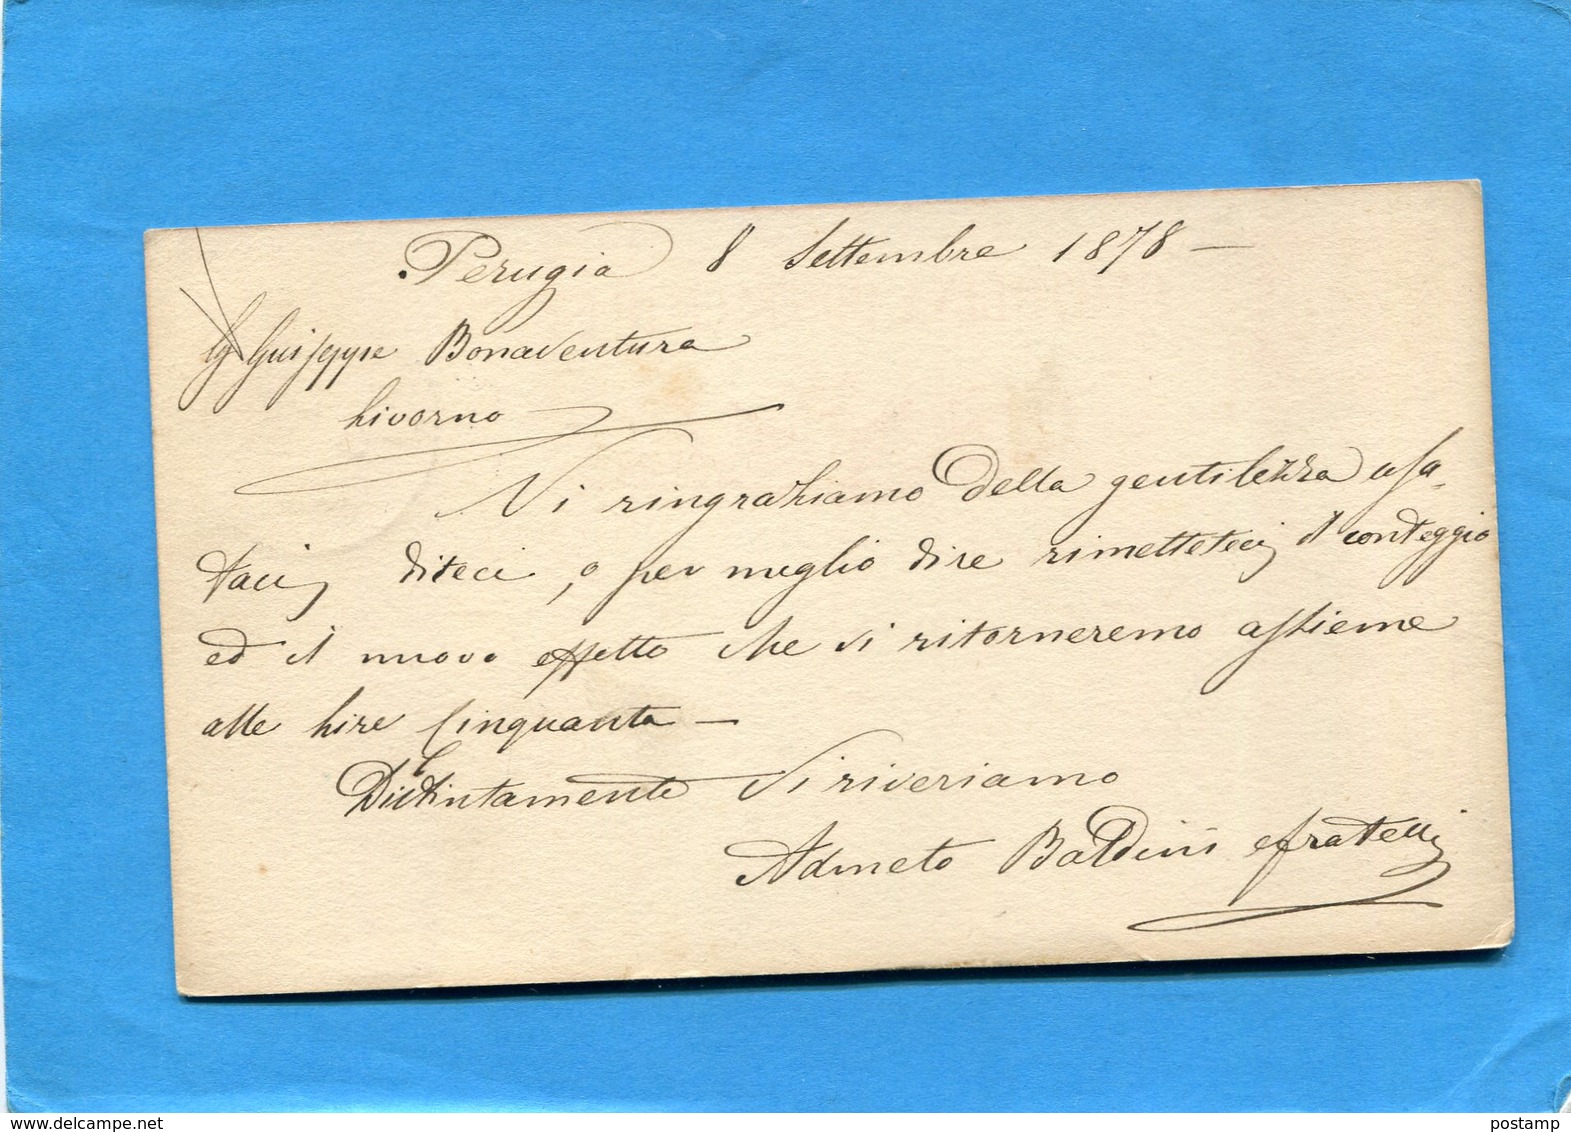 Perugia 8 Settembre 1878 —
Sg Giuseppe Bonaventura
Livorno
Vi ringraziamo della gentilezza usa-
taci, diteci, o per meglio dire rimetteteci il conteggio
ed il nuovo effetto che vi ritorneremo assieme
alle Lire Cinquanta —
Distintamente Vi riveriamo
Admeto Baldini e fratelli
www.delcampe.net
postamp